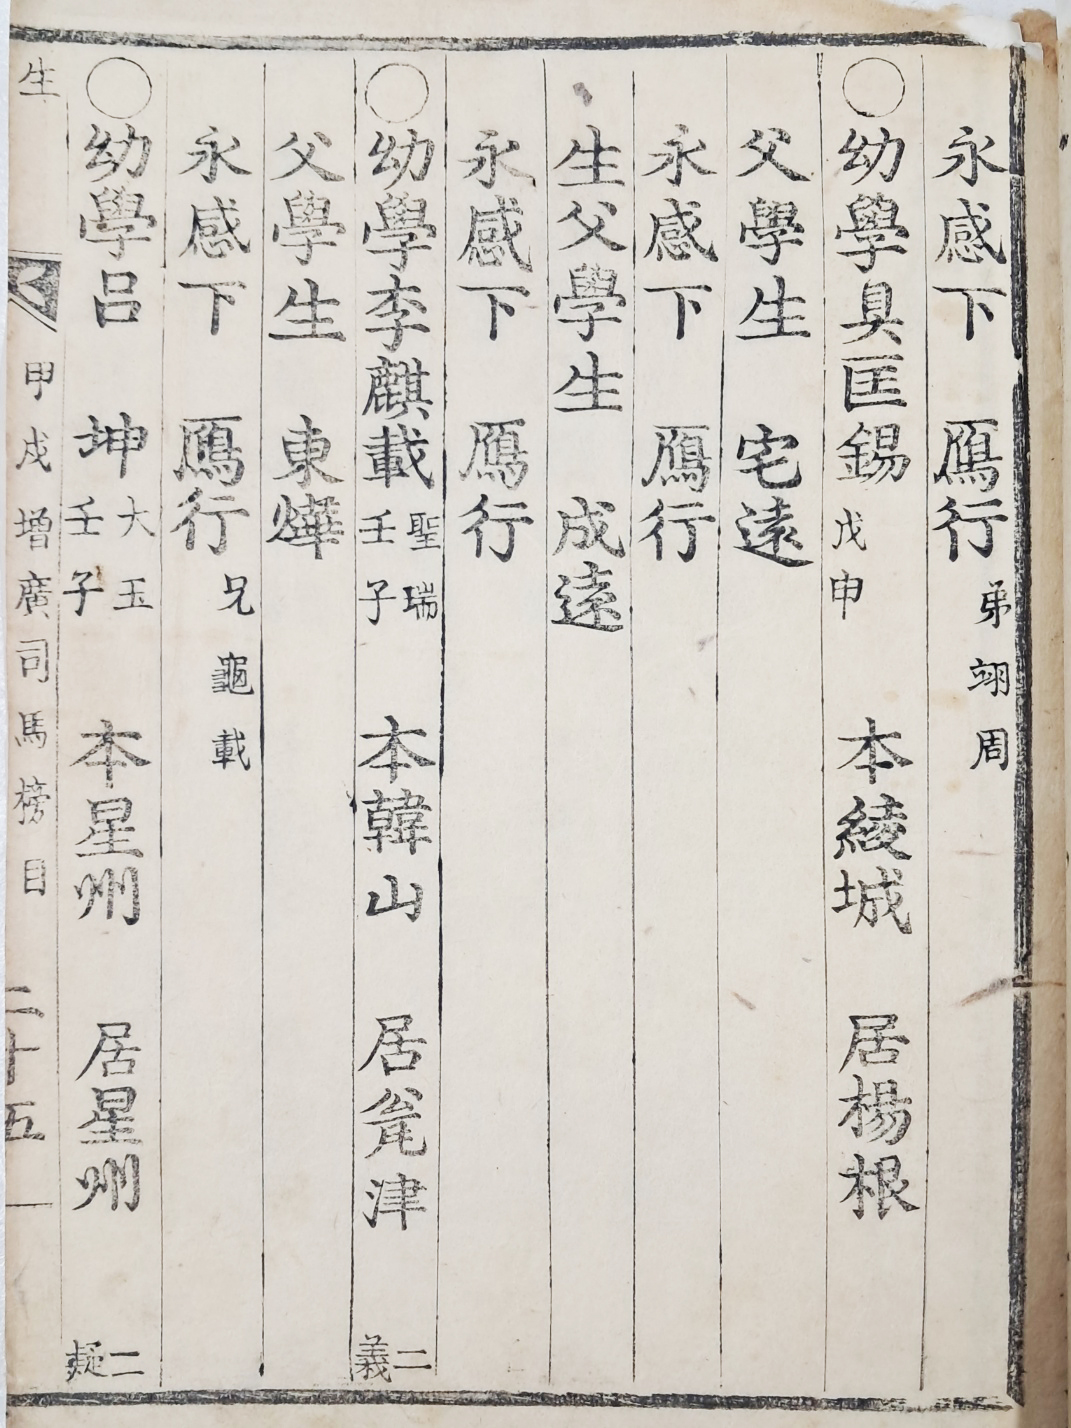 永感下 鴈行 弟翊周
○幼學具匡錫 戊申 本綾城 居楊根
父學生 宅遠
永感下 鴈行
生父學生 成遠
永感下 鴈行
○幼學李麒載 聖瑞 壬子 本韓山 居瓮津 二義
父學生 東燁
永感下 鴈行 兄龜載
○幼學呂 坤 大玉 壬子 本星州 居星州 二疑
生 甲戌增廣司馬榜目 二十五